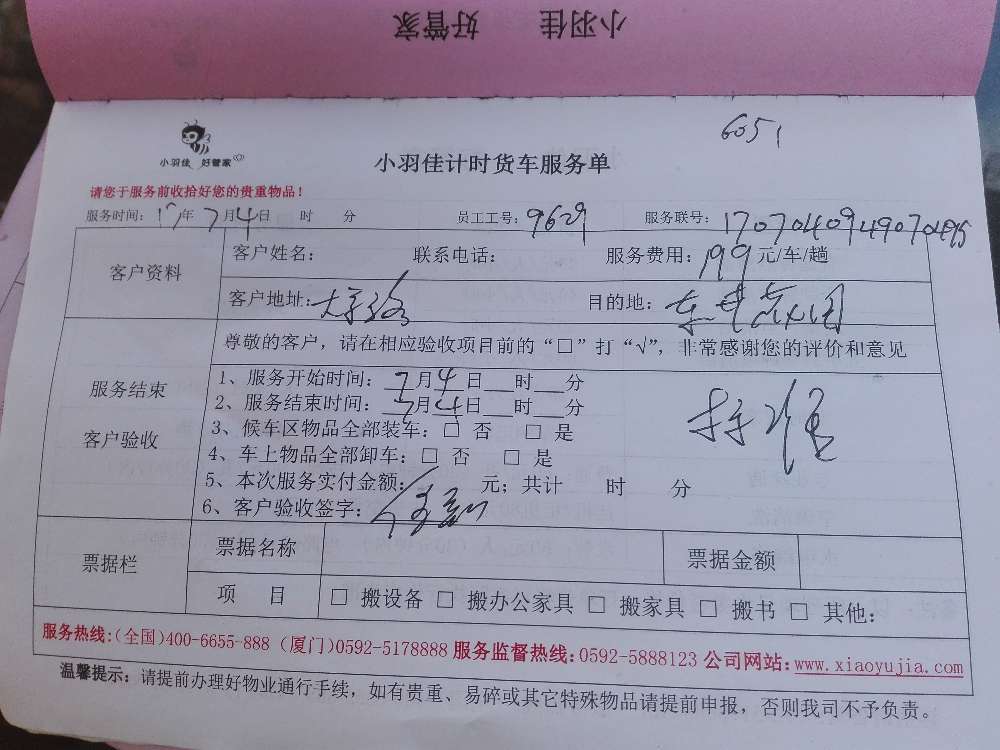 小羽佳 好管家
6051
小羽佳 好管家
小羽佳计时货车服务单
请您于服务前收拾好您的贵重物品！
服务时间：17年7月4日 时 分 员工工号：9629 服务联号：
客户资料
客户姓名： 联系电话： 服务费用：199元/车/趟
客户地址： 目的地：
尊敬的客户，请在相应验收项目前的“□”打“√”，非常感谢您的评价和意见
服务结束
客户验收
1、服务开始时间：7月4日___时___分
2、服务结束时间：7月4日___时___分
3、候车区物品全部装车：□ 否 □ 是
4、车上物品全部卸车：□ 否 □ 是
5、本次服务实付金额： 元；共计 时 分
6、客户验收签字：
票据栏
票据名称 票据金额
项 目 □ 搬设备 □ 搬办公家具 □ 搬家具 □ 搬书 □ 其他：
服务热线:(全国)400-6655-888 (厦门)0592-5178888 服务监督热线:0592-5888123 公司网站:www.xiaoyujia.com
温馨提示：请提前办理好物业通行手续，如有贵重、易碎或其它特殊物品请提前申报，否则我司不予负责。